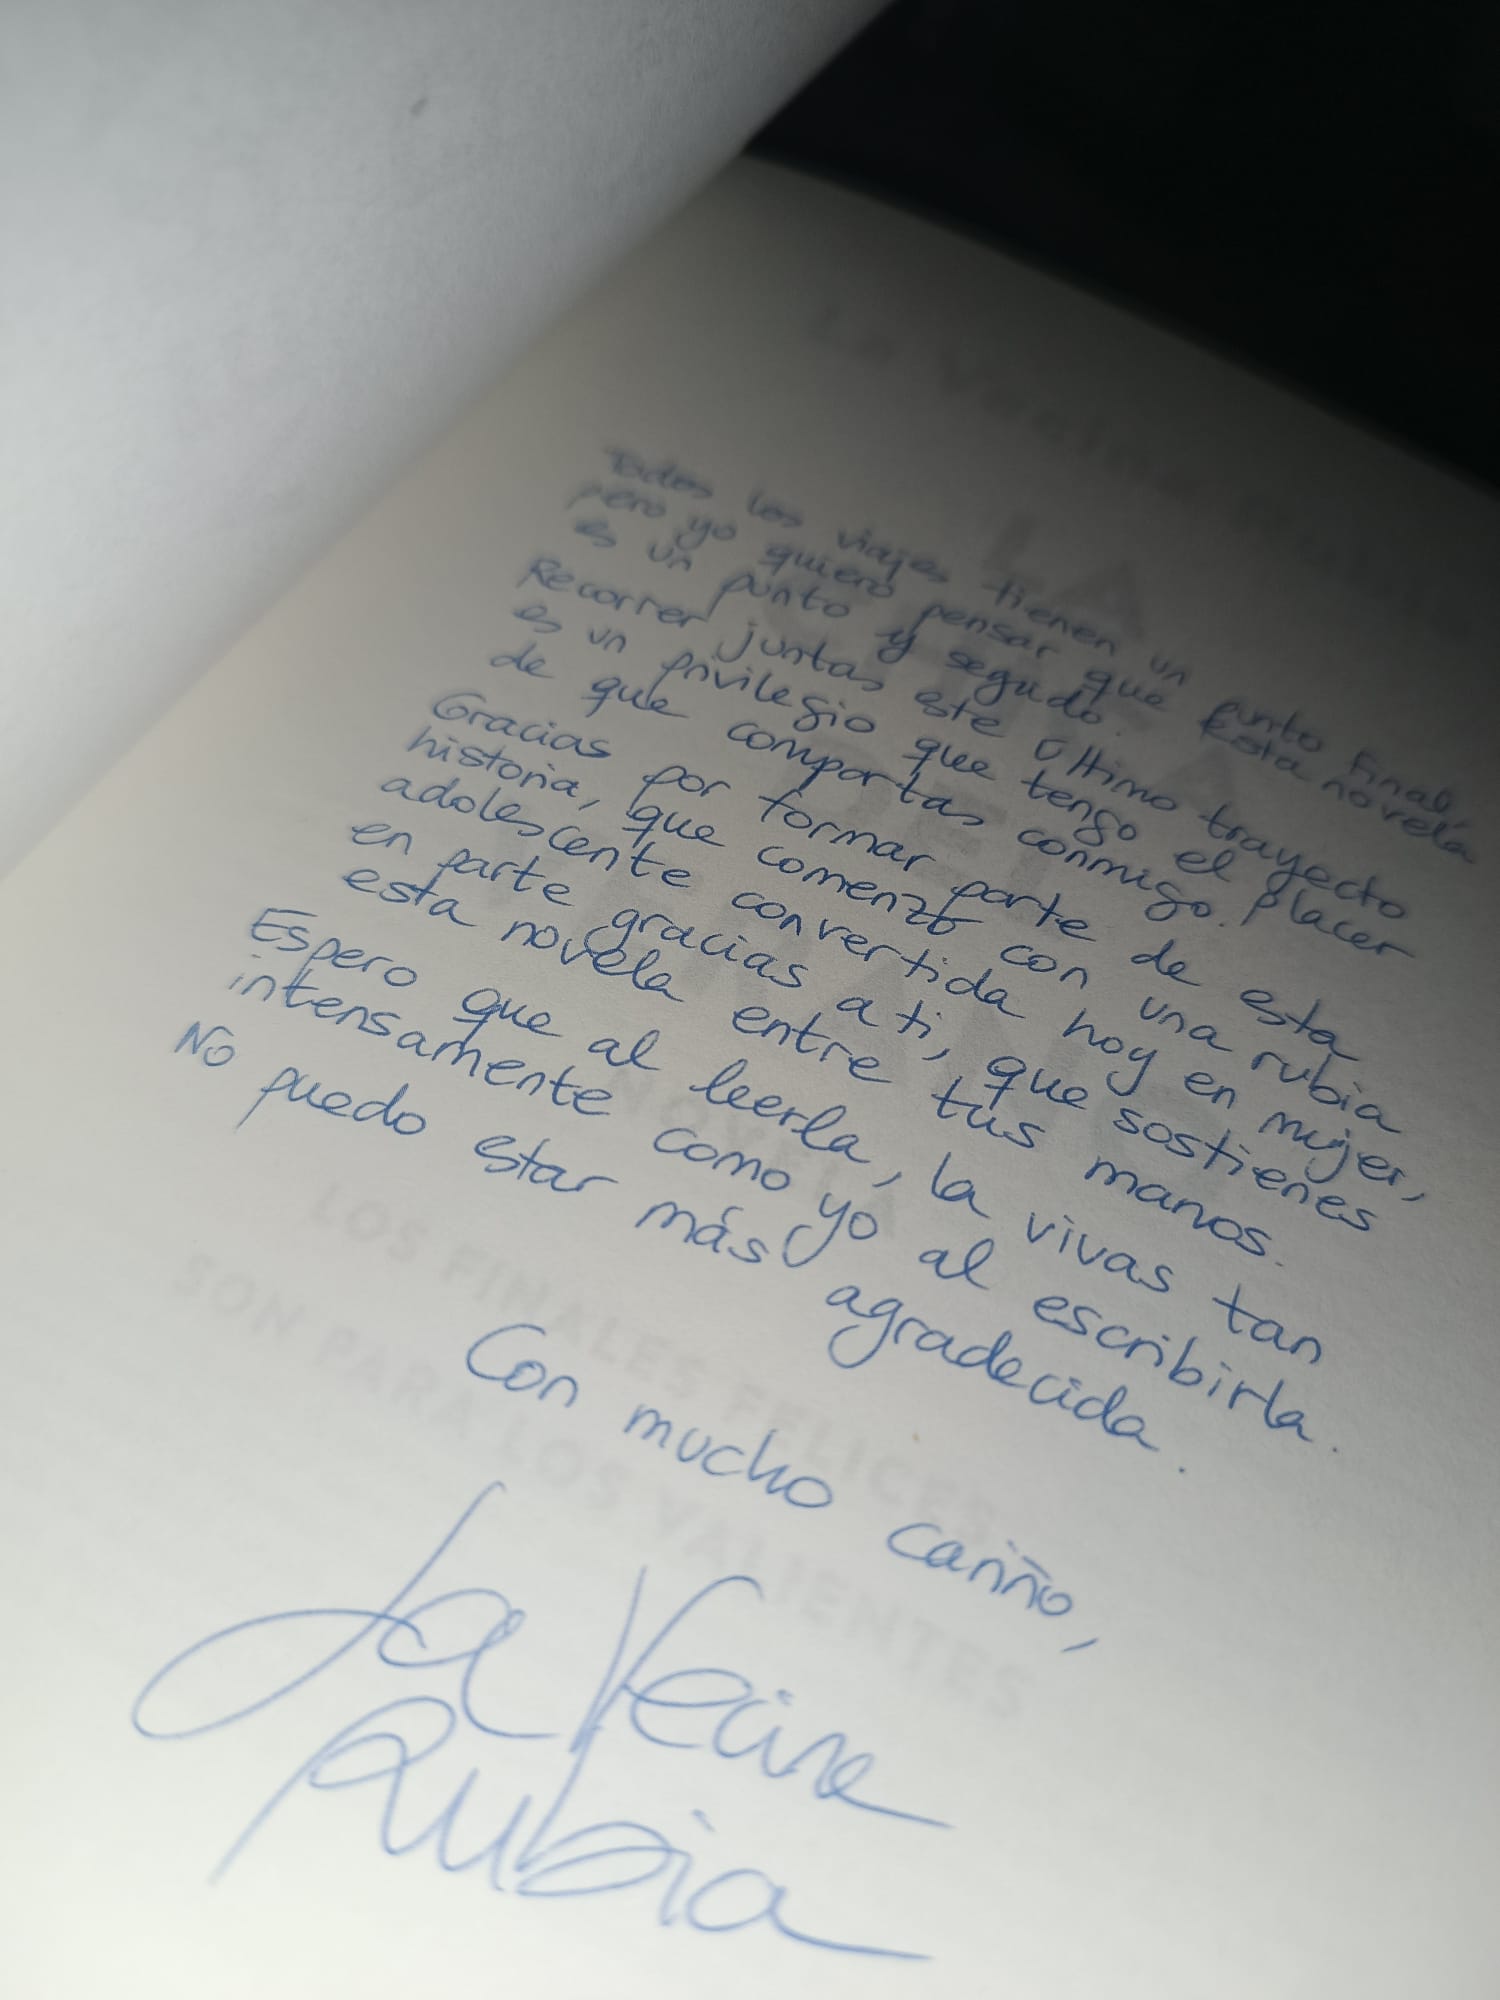 Todos los viajes tienen un punto final,
pero yo quiero pensar que esta novela
es un punto y segudo.
Recorrer juntas este último trayecto
es un privilegio que tengo el placer
de que compartas conmigo.
Gracias por formar parte de esta
historia, que comenzó con una rubia
adolescente convertida hoy en mujer,
en parte gracias a ti, que sostienes
esta novela entre tus manos.
Espero que al leerla, la vivas tan
intensamente como yo al escribirla.
No puedo estar más agradecida.
Con mucho cariño,
La Vecina
Rubia
NOVELA
LOS FINALES FELICES
SON PARA LOS VALIENTES